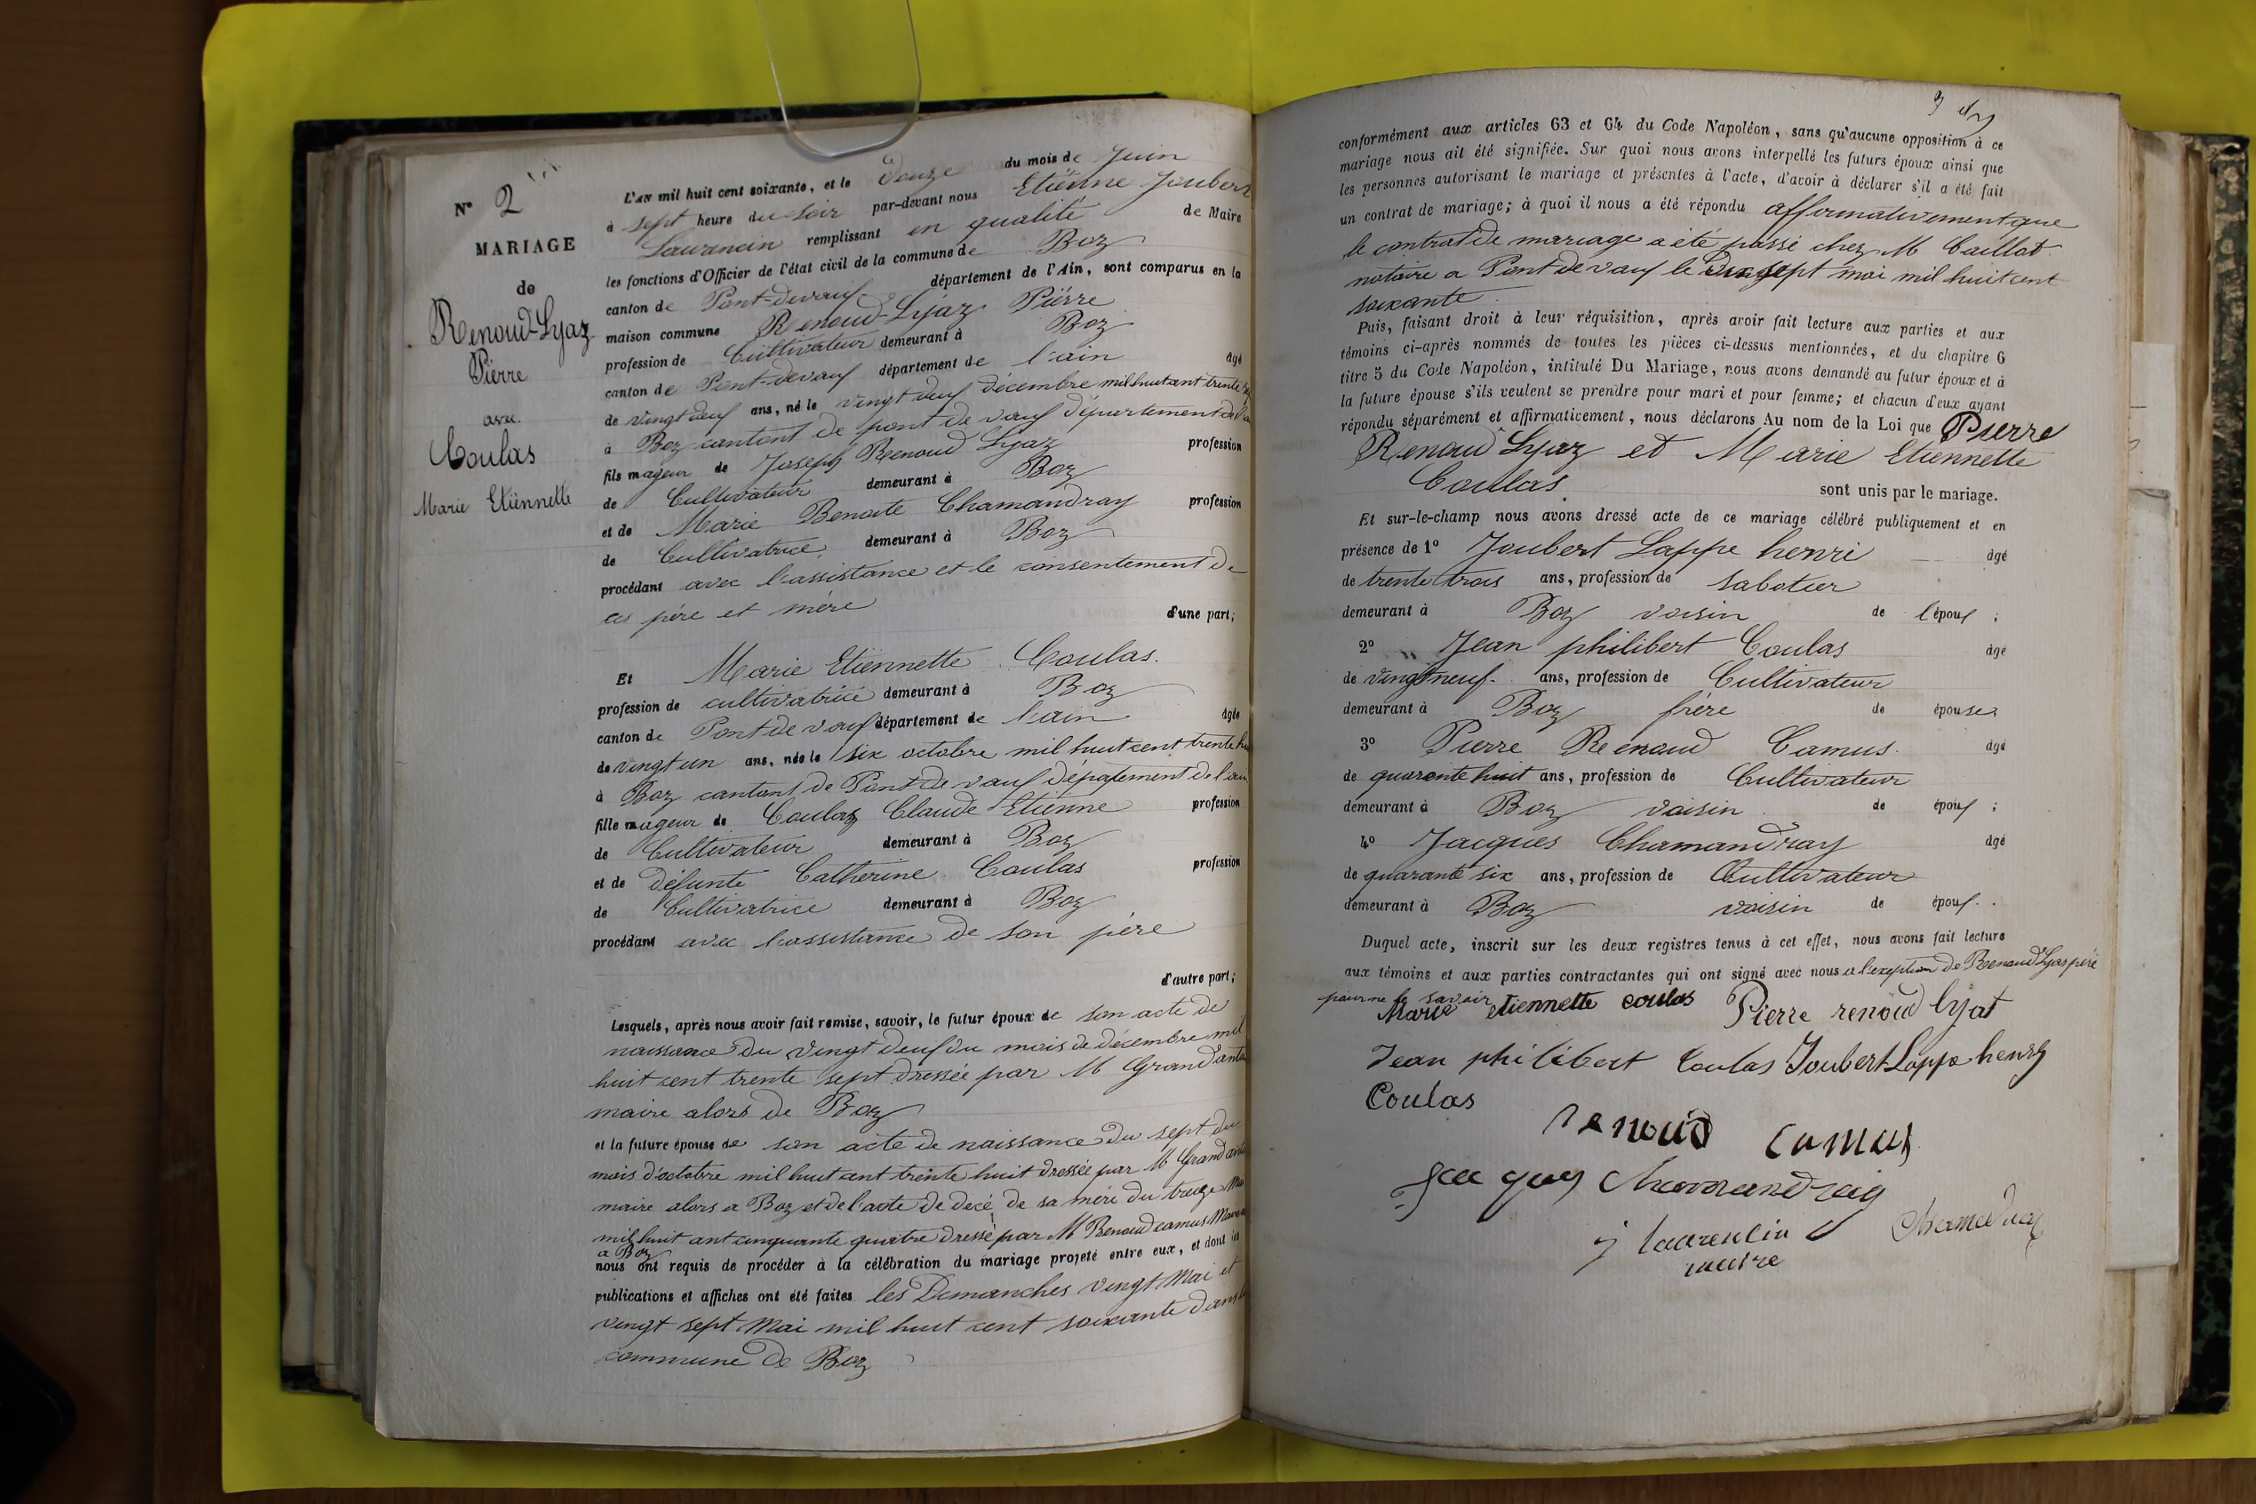 N° 2
MARIAGE
de
Renoud-Lyaz
Piërre
avec
Coulas
Marie Etiënnette
L'an mil huit cent soixante, et le douze du mois de Juin
à sept heure du soir par-devant nous Etiënne Joubert
Laurencin remplissant en qualité de Maire
les fonctions d'Officier de l'état civil de la commune de Boz
canton de Pont-devaux département de l'Ain, sont comparus en la
maison commune Renoud-Lyaz Piërre
profession de Cultivateur demeurant à Boz
canton de Pont-devaux département de l'ain âgé
de vingt deux ans, né le vingt deux décembre mil huit cent trente sept
à Boz cantont de pont de vaux département de l'ain
fils mageur de Joseph Renoud Lyaz profession
de Cultivateur demeurant à Boz
et de Marie Benoite Chamandray profession
de Cultivatrice demeurant à Boz
procédant avec l'assistance et le consentement de
ces père et mère d'une part;
Et Marie Etiënnette Coulas.
profession de cultivatrice demeurant à Boz
canton de Pont de vaux département de l'ain âgée
de vingt un ans, née le six octobre mil huit cent trente huit
à Boz cantont de Pont de vaux département de l'ain
fille mageur de Coulas Claude Etienne profession
de Cultivateur demeurant à Boz
et de défunte Catherine Coulas profession
de Cultivatrice demeurant à Boz
procédant avec l'assistance de son père
d'autre part;
Lesquels, après nous avoir fait remise, savoir, le futur époux de son acte de
naissance du vingt deux du mois de décembre mil
huit cent trente sept dressée par M Grand
maire alors de Boz
et la future épouse de son acte de naissance du sept du
mois d'octobre mil huit cent trente huit dressée par M Grand
maire alors a Boz et de l'acte de decé de sa mère du treize
mil huit cent cinquante quatre dressé par M Renoud camus
a Boz
nous ont requis de procéder à la célébration du mariage projeté entre eux, et dont les
publications et affiches ont été faites les Dimanches vingt Mai et
vingt sept Mai mil huit cent soixante dans la
commune de Boz
conformément aux articles 63 et 64 du Code Napoléon, sans qu'aucune opposition à ce
mariage nous ait été signifiée. Sur quoi nous avons interpellé les futurs époux ainsi que
les personnes autorisant le mariage et présentes à l'acte, d'avoir à déclarer s'il a été fait
un contrat de mariage; à quoi il nous a été répondu affirmativement que
le contrat de mariage a été passé chez M Caillot
notaire a Pont de vaux le dix sept mai mil huit cent
soixante.
Puis, faisant droit à leur réquisition, après avoir fait lecture aux parties et aux
témoins ci-après nommés de toutes les pièces ci-dessus mentionnées, et du chapitre 6
titre 5 du Code Napoléon, intitulé Du Mariage, nous avons demandé au futur époux et à
la future épouse s'ils veulent se prendre pour mari et pour femme; et chacun d'eux ayant
répondu séparément et affirmativement, nous déclarons Au nom de la Loi que Pierre
Renoud Lyaz et Marie Etiennette
Coulas. sont unis par le mariage.
Et sur-le-champ nous avons dressé acte de ce mariage célébré publiquement et en
présence de 1° Joubert Lappe henri âgé
de trente trois ans, profession de sabotier
demeurant à Boz voisin de l'époux;
2° Jean philibert Coulas âgé
de vingt neuf. ans, profession de Cultivateur
demeurant à Boz frère de épouse
3° Pierre Renoud Camus. âgé
de quarante huit ans, profession de Cultivateur
demeurant à Boz voisin de époux;
4° Jacques Chamandray âgé
de quarante six ans, profession de Cultivateur
demeurant à Boz voisin de époux.
Duquel acte, inscrit sur les deux registres tenus à cet effet, nous avons fait lecture
aux témoins et aux parties contractantes qui ont signé avec nous a l'exeption de Renoud Lyaz père
pour ne le savoir
Marie etiennette coulas Pierre renoud lyat
Jean philibert Coulas Joubert Lappe henry
Coulas
renoud camus
Jacques Chamandray
j laurencin
maire